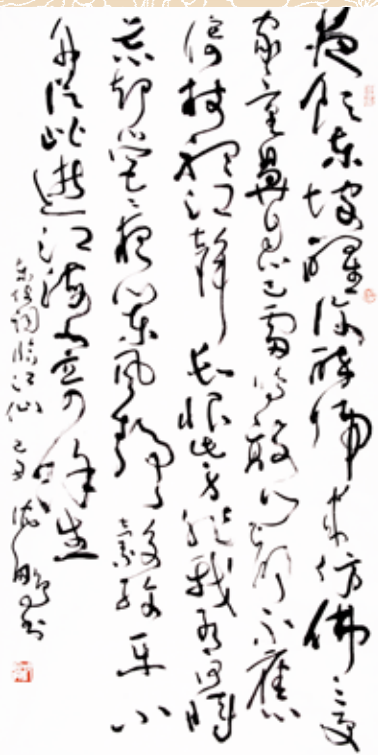 夜飲東坡醒復醉歸來仿佛三更
家童鼻息已雷鳴敲門都不應
倚杖聽江聲長恨此身非我有何時
忘却營營夜闌風靜縠紋平小
舟從此逝江海寄餘生
東坡詞臨江仙 己丑 沈鵬書